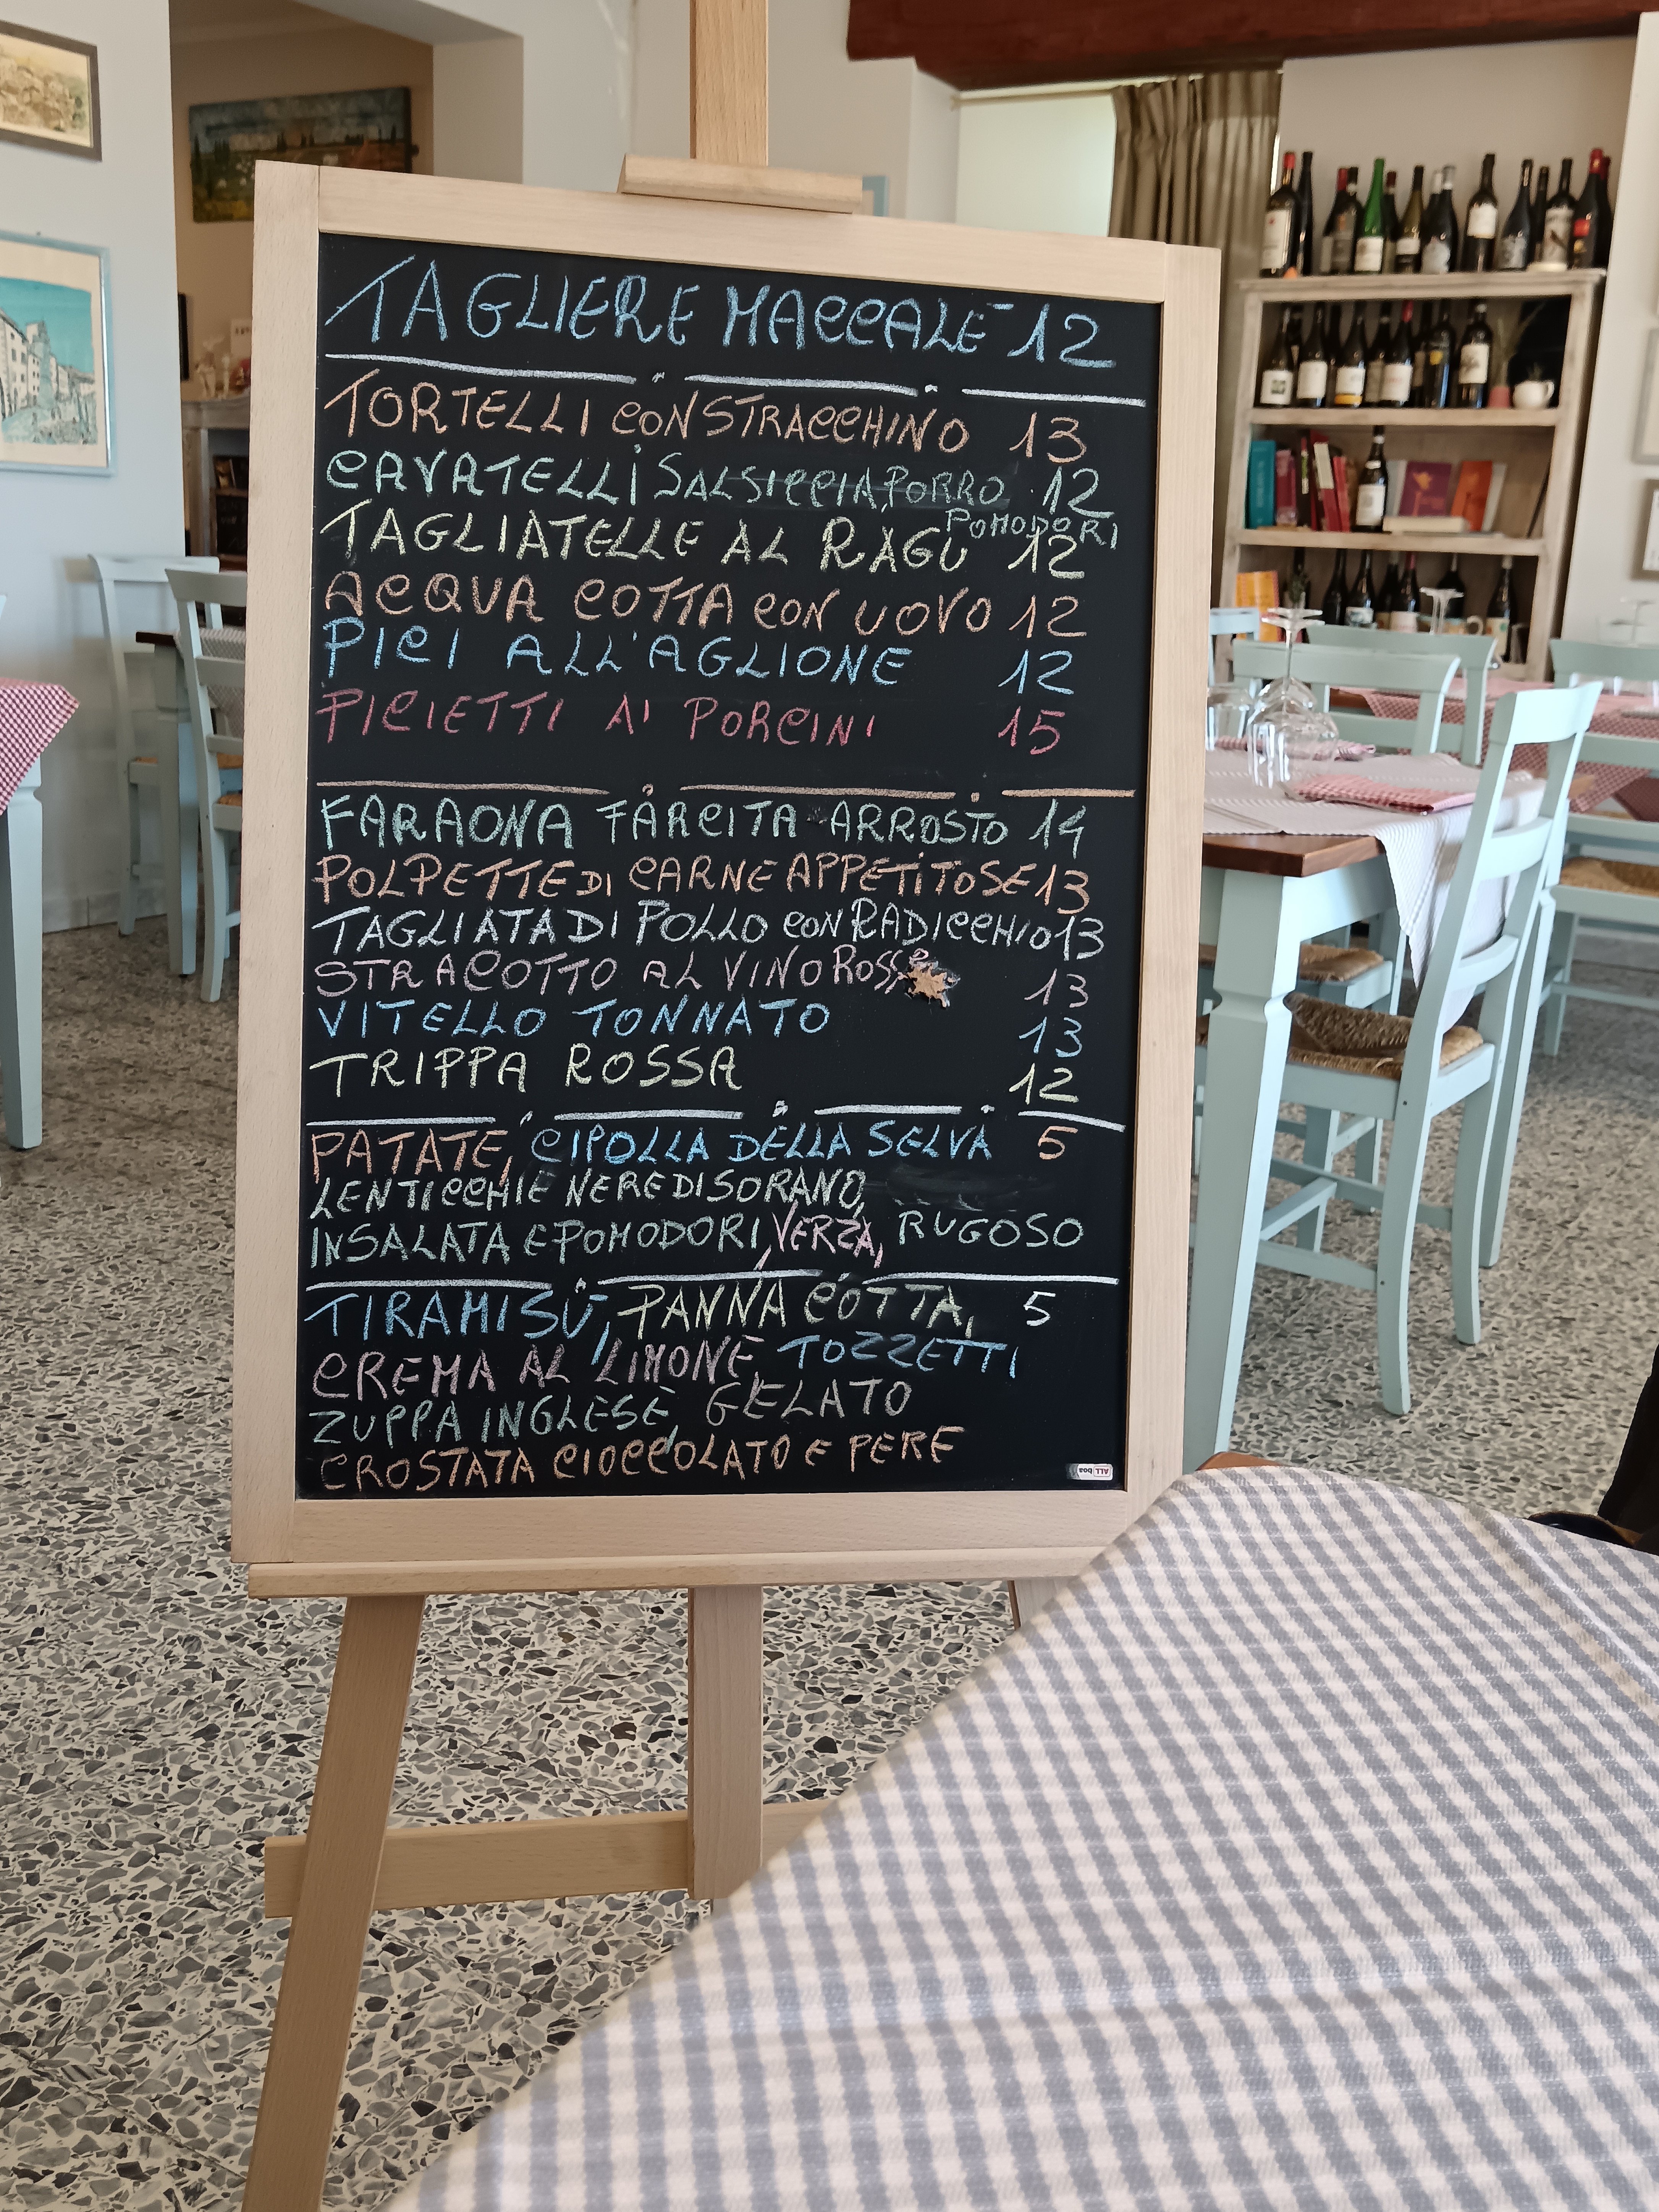 TAGLIERE MACCALE' 12
TORTELLI CON STRACCHINO 13
CAVATELLI SALSICCIA, PORRO 12
POMODORI
TAGLIATELLE AL RAGÙ 12
ACQUA COTTA CON UOVO 12
PICI ALL'AGLIONE 12
PICIETTI AI PORCINI 15
FARAONA FARCITA ARROSTO 14
POLPETTE DI CARNE APPETITOSE 13
TAGLIATA DI POLLO CON RADICCHIO 13
STRACOTTO AL VINO ROSSO 13
VITELLO TONNATO 13
TRIPPA ROSSA 12
PATATE, CIPOLLA DELLA SELVA 5
LENTICCHIE NERE DI SORANO,
INSALATA E POMODORI, VERZA, RUGOSO
TIRAMISÙ, PANNA COTTA, 5
CREMA AL LIMONE, TOZZETTI
ZUPPA INGLESE, GELATO
CROSTATA CIOCCOLATO E PERE
ALL boa